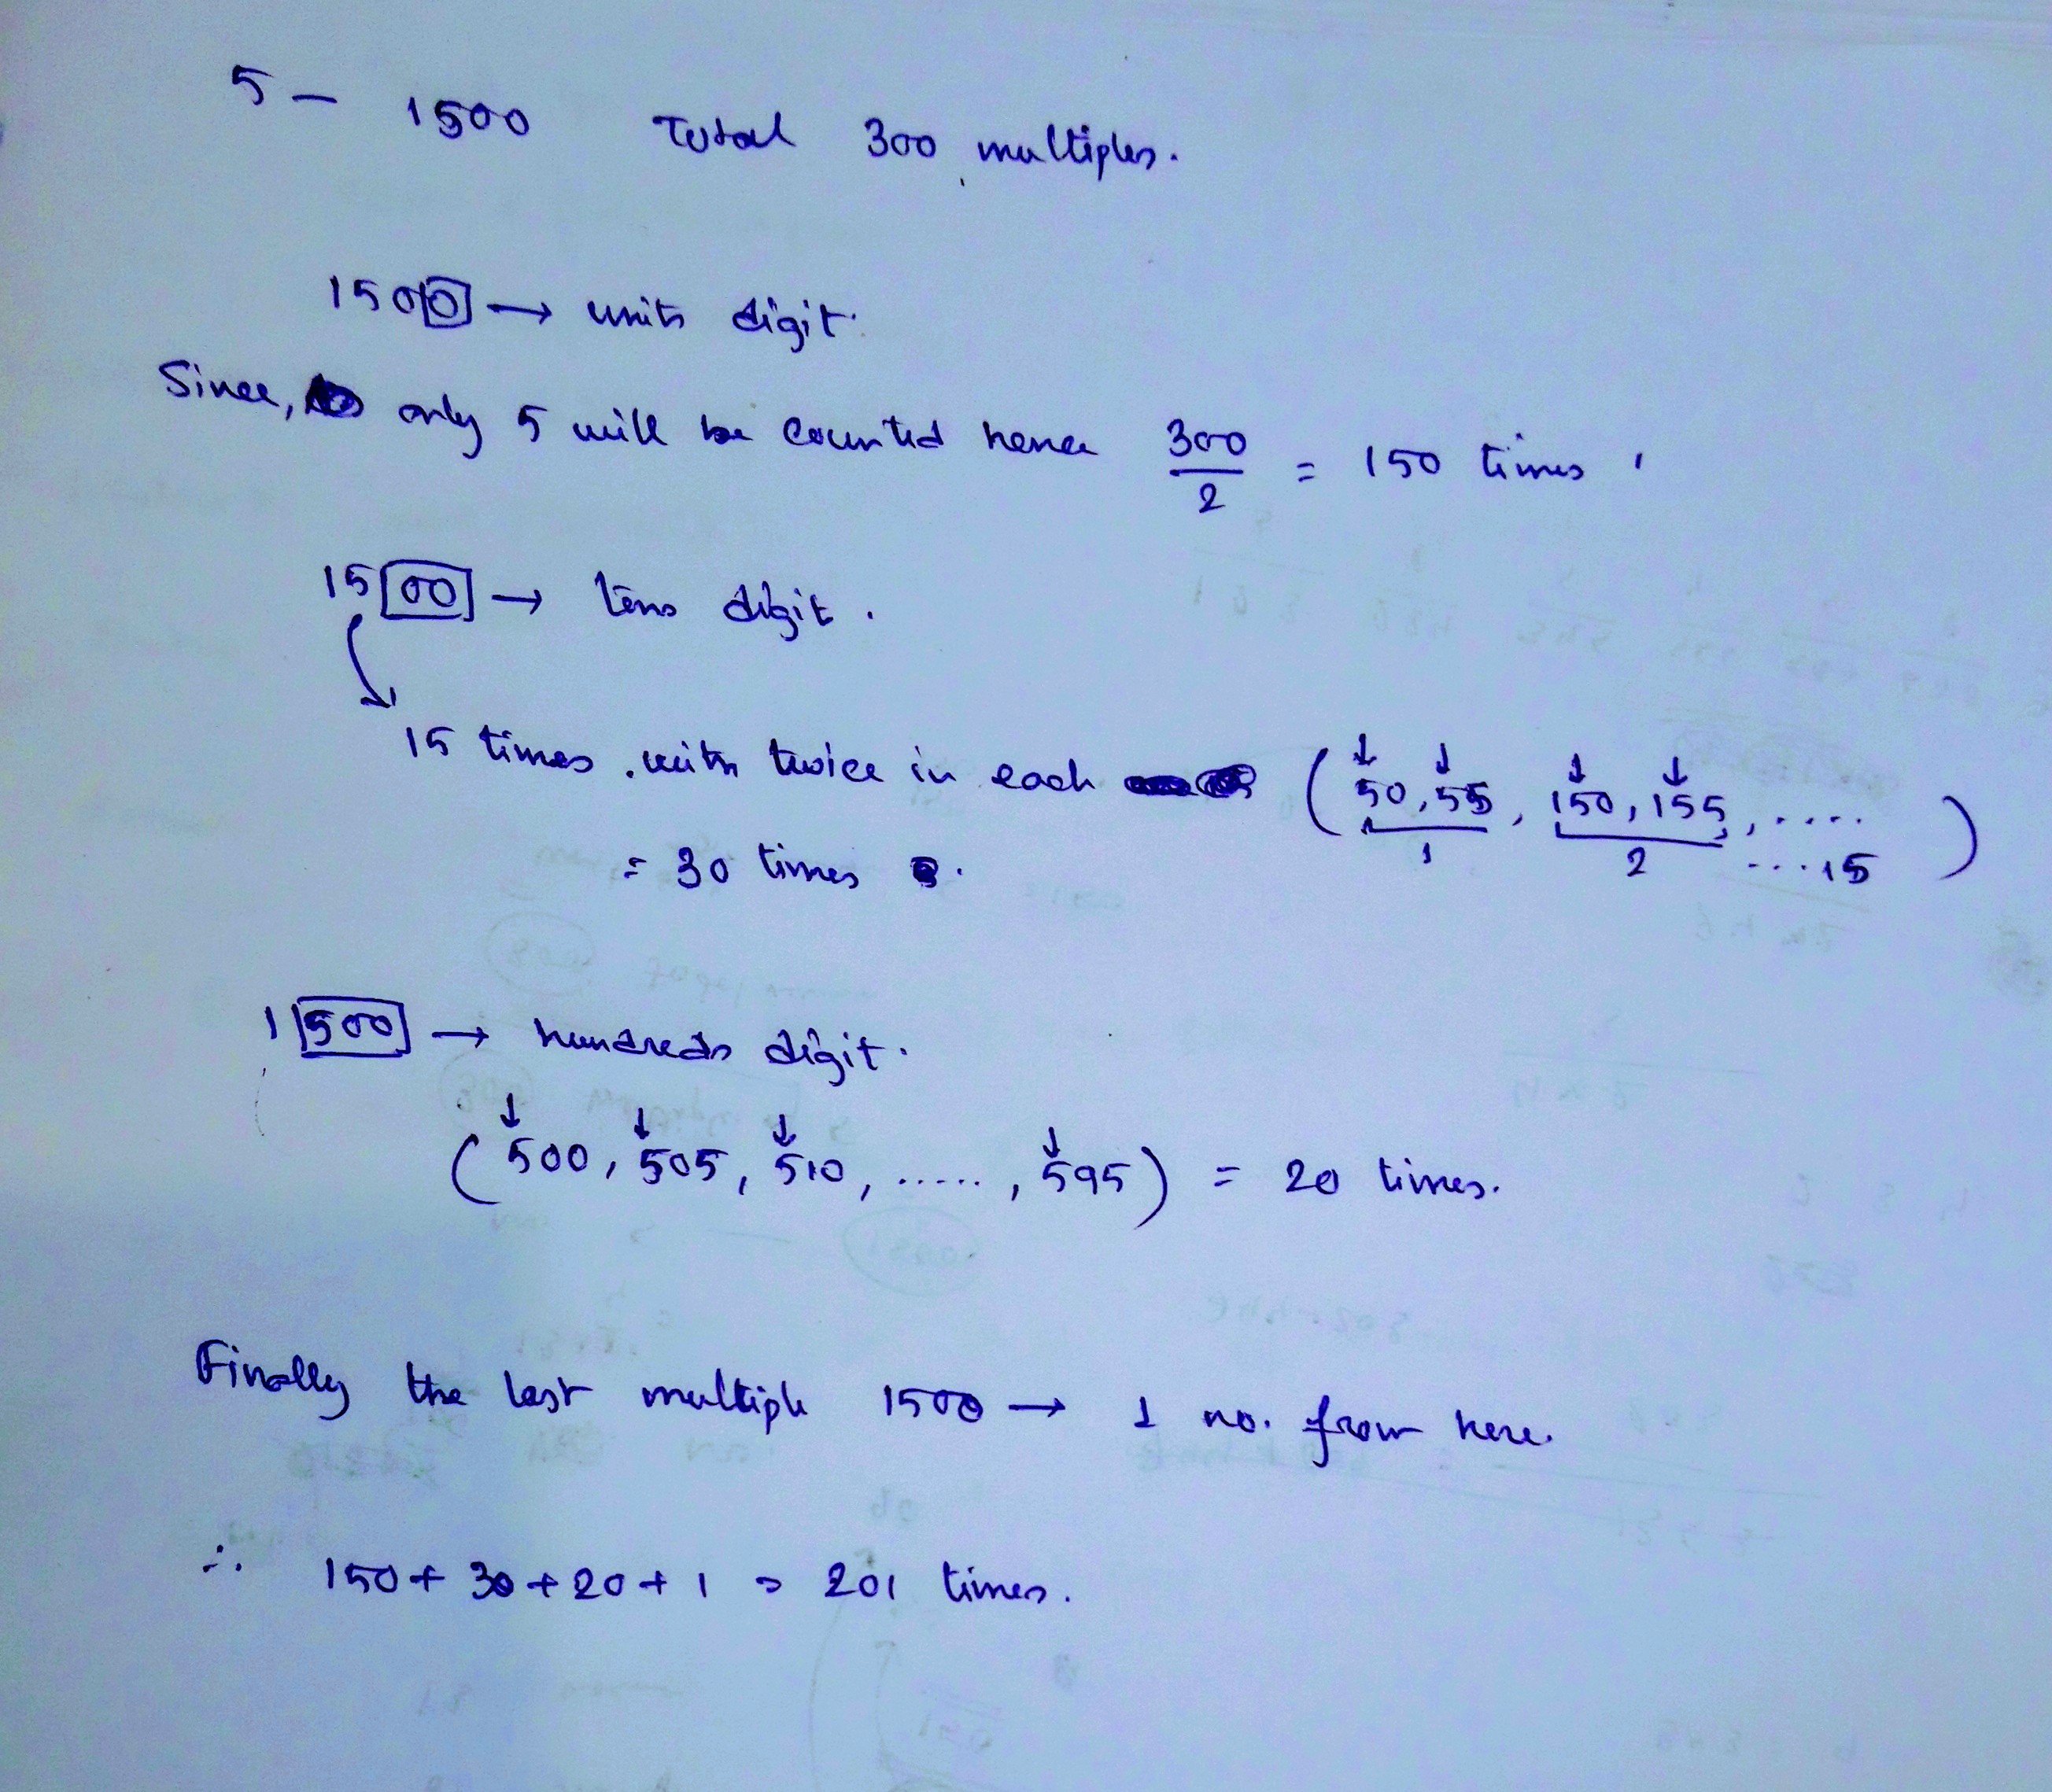 5 - 1500 Total 300 multiples.
1500 → units digit.
Since, only 5 will be counted hence 300/2 = 150 times.
1500 → tens digit.
15 times. with twice in each (50, 55, 150, 155, ....
1 2 ... 15)
= 30 times.
1500 → hundreds digit.
(500, 505, 510, ....., 595) = 20 times.
Finally the last multiple 1500 → 1 no. from here.
∴ 150 + 30 + 20 + 1 = 201 times.